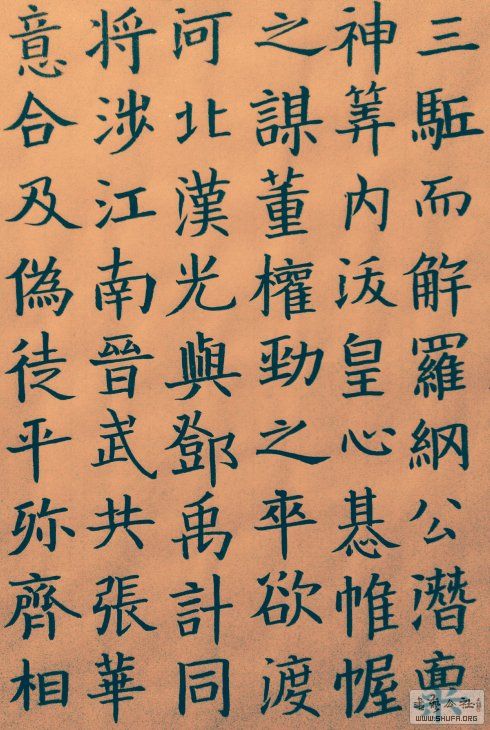 三駈而解羅網公潛
神筭内沃皇心惎帷幄
之謀董權勁之卒欲渡
河北漢光與鄧禹計同
将涉江南晉武共張華
意合及偽徒平殄齊相
書法公社
WWW.SHUFA.ORG